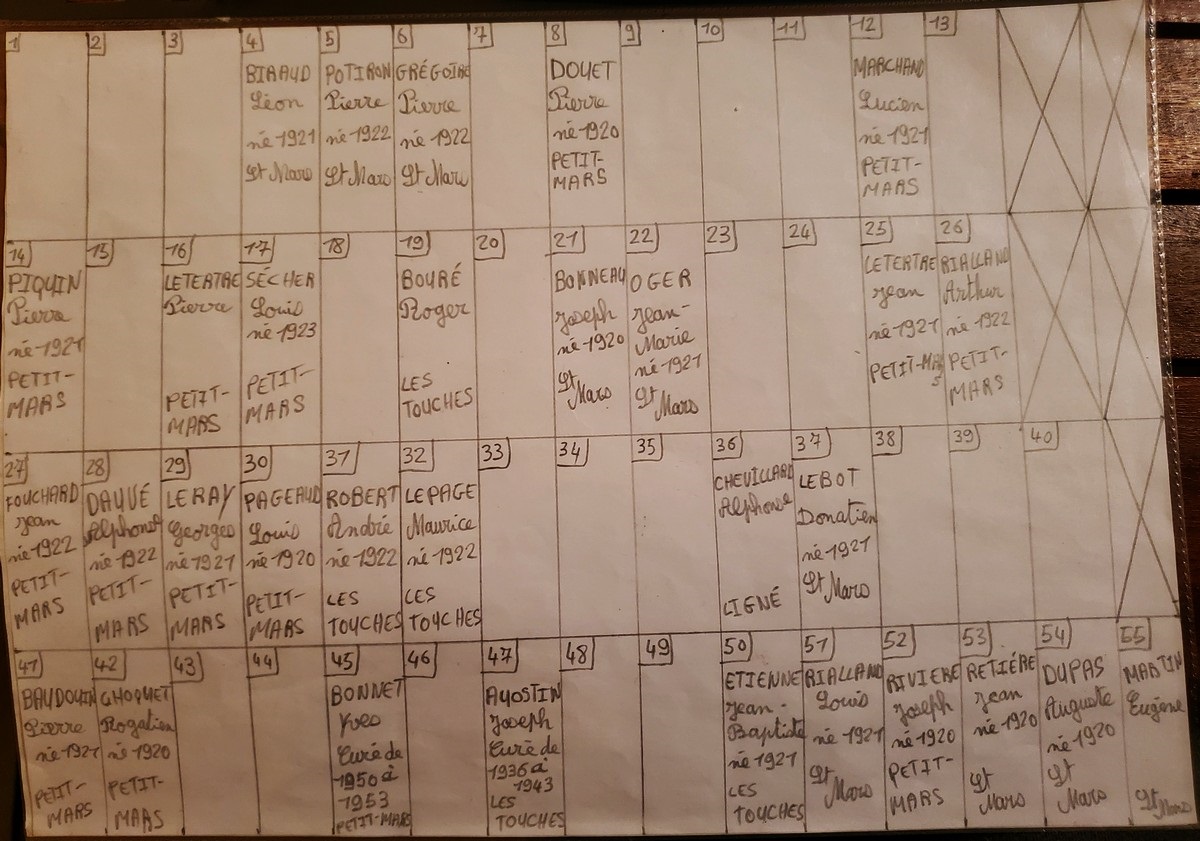 1
2
3
4
BIRAUD
Léon
né 1921
St Mars
5
POTIRON
Pierre
né 1922
St Mars
6
GRÉGOIRE
Pierre
né 1922
St Mars
7
8
DOUET
Pierre
né 1920
PETIT-
MARS
9
10
11
12
MARCHAND
Lucien
né 1921
PETIT-
MARS
13
14
PIQUIN
Pierre
né 1921
PETIT-
MARS
15
16
LETERTRE
Pierre
PETIT-
MARS
17
SÉCHER
Louis
né 1923
PETIT-
MARS
18
19
BOURÉ
Roger
LES
TOUCHES
20
21
BONNEAU
Joseph
né 1920
St
Mars
22
OGER
Jean-
Marie
né 1921
St
Mars
23
24
25
LETERTRE
Jean
né 1921
PETIT-MAR
S
26
RIALLAND
Arthur
né 1922
PETIT-
MARS
27
FOUCHARD
Jean
né 1922
PETIT-
MARS
28
DAUVÉ
Alphonse
né 1922
PETIT-
MARS
29
LERAY
Georges
né 1921
PETIT-
MARS
30
PAGEAUD
Louis
né 1920
PETIT-
MARS
31
ROBERT
André
né 1922
LES
TOUCHES
32
LEPAGE
Maurice
né 1922
LES
TOUCHES
33
34
35
36
CHEVILLARD
Alphonse
LIGNÉ
37
LEBOT
Donatien
né 1921
St Mars
38
39
40
41
BAUDOUIN
Pierre
né 1921
PETIT-
MARS
42
CHOQUET
Rogatien
né 1920
PETIT-
MARS
43
44
45
BONNET
Yves
Curé de
1950 à
1953
PETIT-MARS
46
47
AUOSTIN
Joseph
Curé de
1936 à
1943
LES
TOUCHES
48
49
50
ETIENNE
Jean-
Baptiste
né 1921
LES
TOUCHES
51
RIALLAND
Louis
né 1921
St
Mars
52
RIVIERE
Joseph
né 1920
PETIT-
MARS
53
RETIÉRE
Jean
né 1920
St
Mars
54
DUPAS
Auguste
né 1920
St
Mars
55
MARTIN
Eugène
St Mars